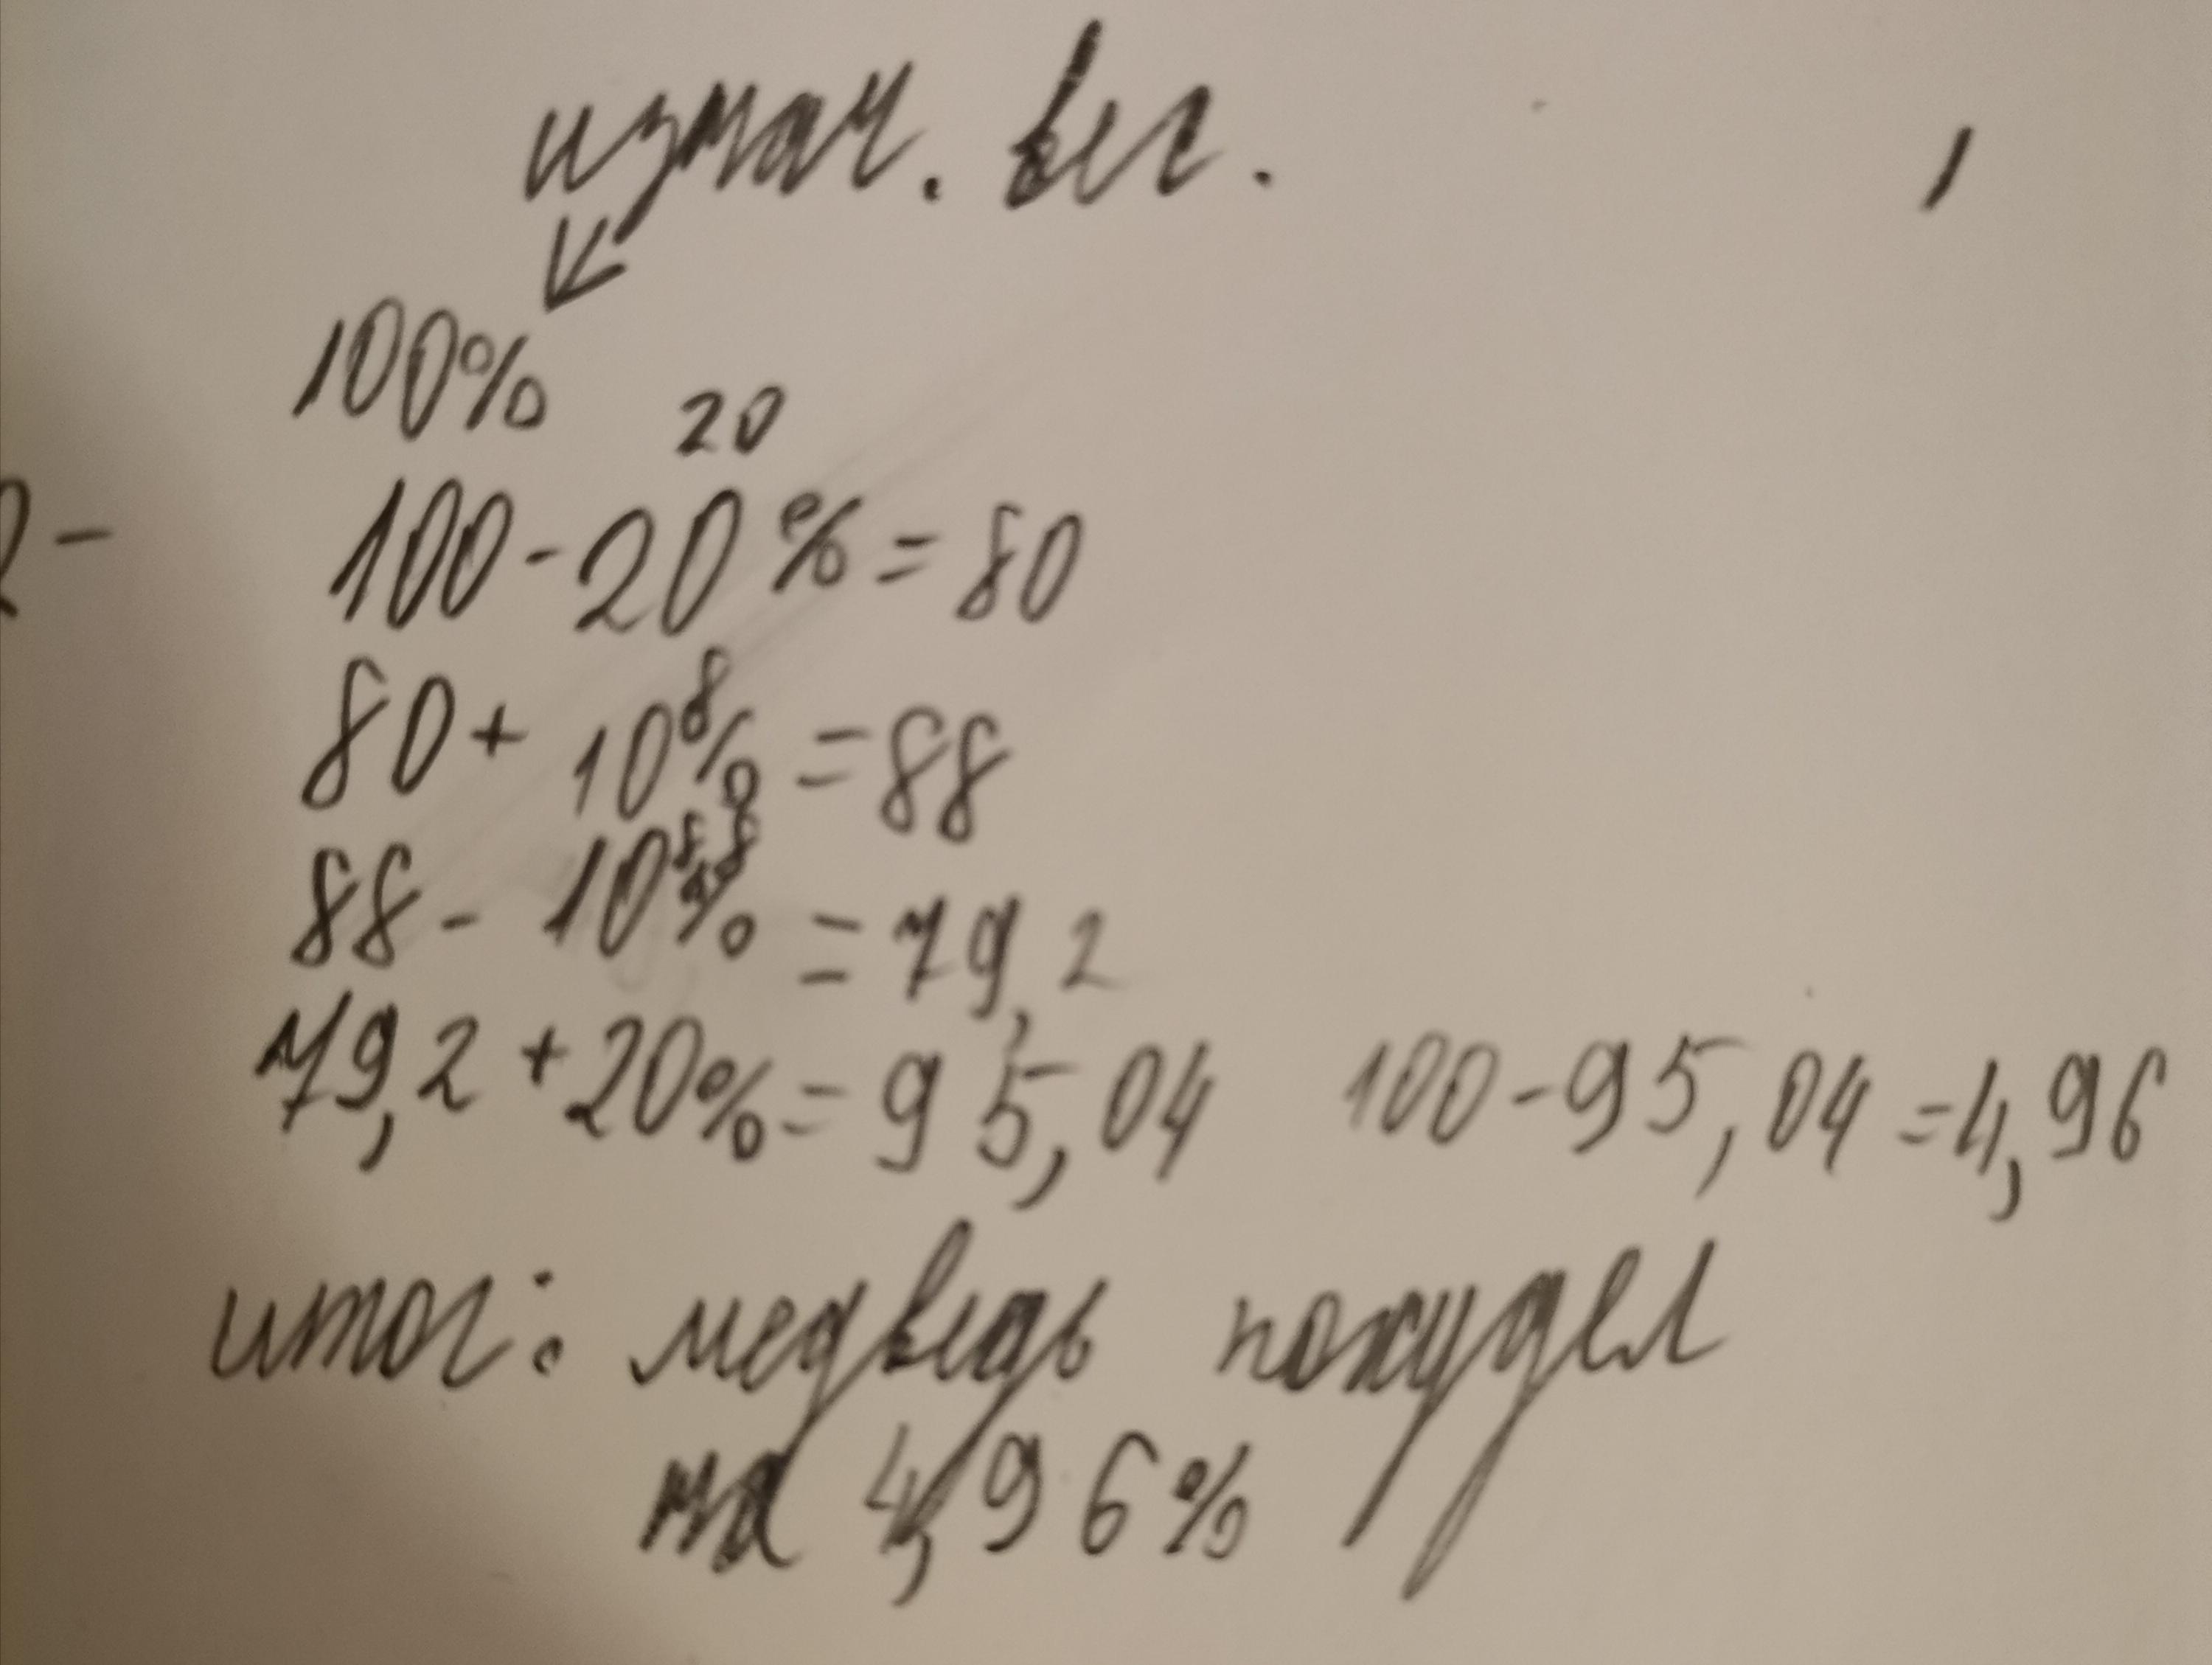 изнач. вес.
100%
20
100-20%=80
8
80+10%=88
8,8
88-10%=79,2
79,2+20%=95,04 100-95,04=4,96
итог: медведь похудел
на 4,96%